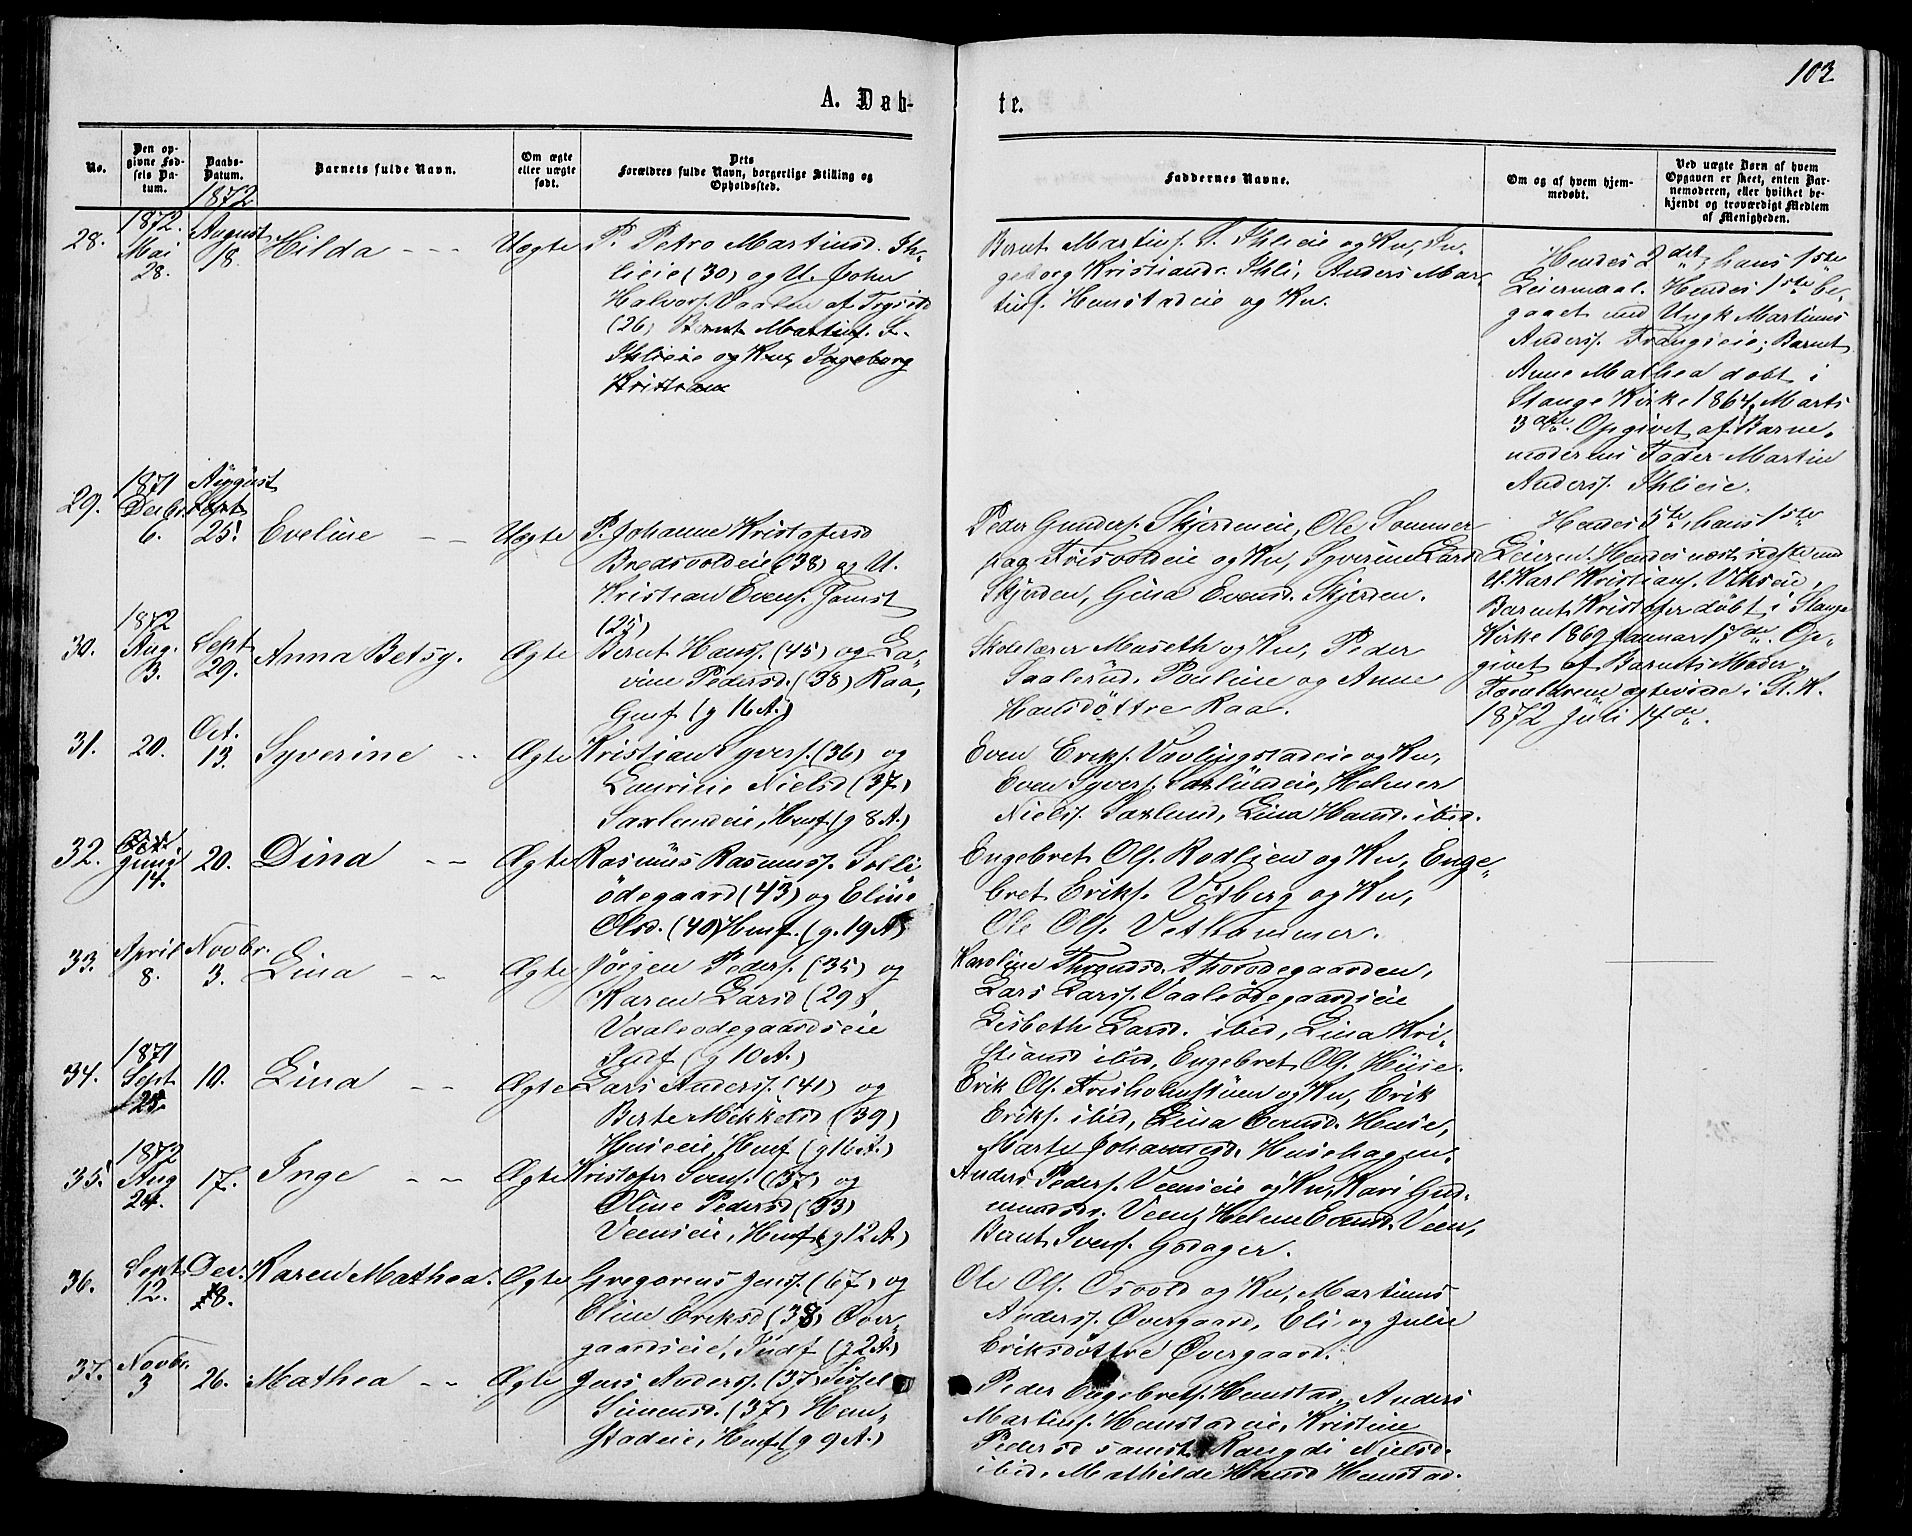 103
A. Døb-
te.
No.
Den op-
givne Fød-
sels Da-
tum.
Daabs-
Datum.
Barnets fulde Navn.
Om ægte
eller uægte
født.
Dets
Forældres fulde Navn, borgerlige Stilling og
Opholdssted.
Faddernes Navne.
Om og af hvem hjem-
medøbt.
Ved uægte Børn af hvem
Opgaven er skeet, enten Bar-
nemoderen, eller hvilket be-
kjendt og troværdigt Medlem
af Menigheden.
1872
28.
1872.
Mai
28.
August
18.
Hilda
Uægte
P. Petro Martinsd. Ih-
lieie (30) og U. John
Halvors. af Trysild
(26) Bernt Martins. S.
Ihlieie og Kn, Ingeborg
Kristian
Bernt Martins. S. Ihlieie og Kn, In-
geborg Kristiansd. Ihli, Anders Mar-
tins. Hemstadeie og Kn.
Hendes 2det, hans 1ste
Leiermaal. Hendes 1ste be-
gaaet med Ungk. Martinus
Anders. Frangseie; Barnet
Anne Mathea døbt i
Stange Kirke 1864 Marts
3die. Opgivet af Barne-
moderens Fader Martin
Anders. Ihlieie.
29.
1871
Decbr
6.
August
Sept
25.
Eveline
Uægte
P. Johanne Kristofersd
Bredsvoldeie (38) og U.
Kristian Evens. Jomst
(25)
Peder Gunders. Skjerdeneie, Ole Sommer
paa Frisvoldeie og Kn, Syverine Larsd
Skjerden, Gina Evensd. Skjerden.
Hendes 5te, hans 1ste
Leierm. Hendes næst sidste med
U. Karl Kristians. Vikseie,
Barnet Kristofer døbt i Stange
Kirke 1869 Januar 17de. Op-
givet af Barnets Moder.
Forældrene ægteviede i St. K.
1872 Juli 14de.
30.
1872
Aug.
3.
Sept
29.
Anna Betsy.
Ægte
Bernt Hans. (45) og La-
vine Pedersd. (38) Raa,
Gmf. (g 16 A.)
Skolelærer Maseth og Kn, Peder
Saalerud, Pouline og Anne
Hansdøttre Raa.
31.
20.
Oct.
13.
Syverine
Ægte
Kristian Syvers. (36) og
Laurine Nielsd (37)
Saxlundeie, Hmf. (g 8 A.)
Even Eriks. Vavlingstadeie og Kn,
Even Syvers. Saxlundeie, Helmer
Niels. Saxlund, Lina Hansd. ibid.
32.
Oct.
Juni
14.
20.
Dina
Ægte
Rasmus Rasmuss. Solli-
ødegaard (43) og Eline
Olsd. (40) Hmf. (g. 19 A)
Engebret Ols. Rodlien og Kn, Enge-
bret Eriks. Viksberg og Kn,
Ole Ols. Vethammer.
33.
April
8.
Novbr.
3.
Lina
Ægte
Jörgen Peders. (35) og
Karen Larsd (29)
Vaaleødegaardseie
Indf (g 10 A.)
Karoline Throndsd. Thorødegaarden,
Lars Lars. Vaaleødegaardseie
Lisbeth Larsd. ibid, Lina Kri-
stiansd ibid, Engebret Ols. Huse.
34.
1871
Sept
25.
10.
Lina
Ægte
Lars Anders. (41) og
Berte Mikkelsd (39)
Huseeie, Hmf (g 16 A.)
Erik Ols. Frisholmstuen og Kn, Erik
Eriks. ibid, Lina Evensd. Huse,
Marte Johannesd. Husehagen.
35.
1872
Aug
24.
17.
Inge
Ægte
Kristofer Svens. (37) og
Oline Pedersd (33)
Veenseie, Hmf (g 12 A.)
Anders Peders. Veenseie og Kn, Kari Gud-
mundsd. Veen, Helene Evensd. Veen,
Bernt Svens. Godager.
36.
Sept
12.
Dec.
8.
Karen Mathea.
Ægte
Gregorius Jens. (67) og
Eline Eriksd (38) Øver-
gaardseie, Indf (g 2 A.)
Ole Ols. Osvold og Kn, Martinus
Anders. Øvergaard, Eli og Julie
Eriksdøttre Øvergaard.
37.
Novbr.
3
26.
Mathea
Ægte
Jens Anders. (37) Sissel
Simensd. (37) Hem-
stadeie, Hmf (g 9 A.)
Peder Engebrets. Hemstad, Anders
Martins. Hemstadeie, Kristine
Pedersd samst, Rangdi Nielsd.
ibid, Mathilde Hansd Hemstad.